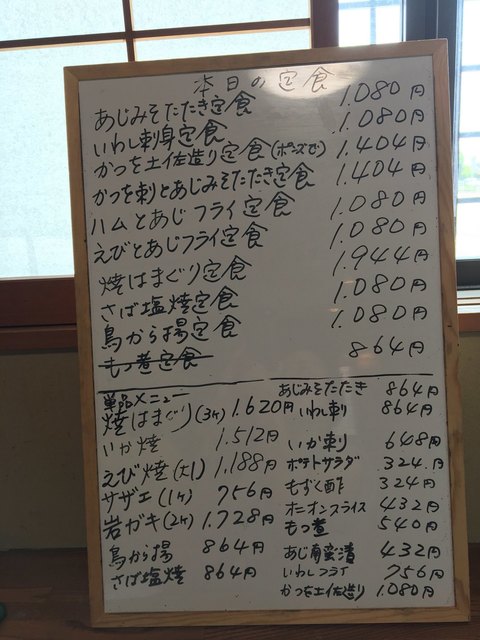 本日の定食
あじみそたたき定食 1.080円
いわし刺身定食 1.080円
かつを土佐造り定食(ポンズで) 1.404円
かつを刺とあじみそたたき定食 1.404円
ハムとあじフライ定食 1.080円
えびとあじフライ定食 1.080円
焼はまぐり定食 1.944円
さば塩焼定食 1.080円
鳥から揚定食 1.080円
もつ煮定食 864円
単品メニュー
焼はまぐり(3ケ) 1.620円
いか焼 1.512円
えび焼(大1) 1.188円
サザエ(1ケ) 756円
岩ガキ(2ケ) 1.728円
鳥から揚 864円
さば塩焼 864円
あじみそたたき 864円
いわし刺 864円
いか刺 648円
ポテトサラダ 324円
もずく酢 324円
オニオンスライス 432円
もつ煮 540円
あじ南蛮漬 432円
いわしフライ 756円
かつを土佐造り 1.080円